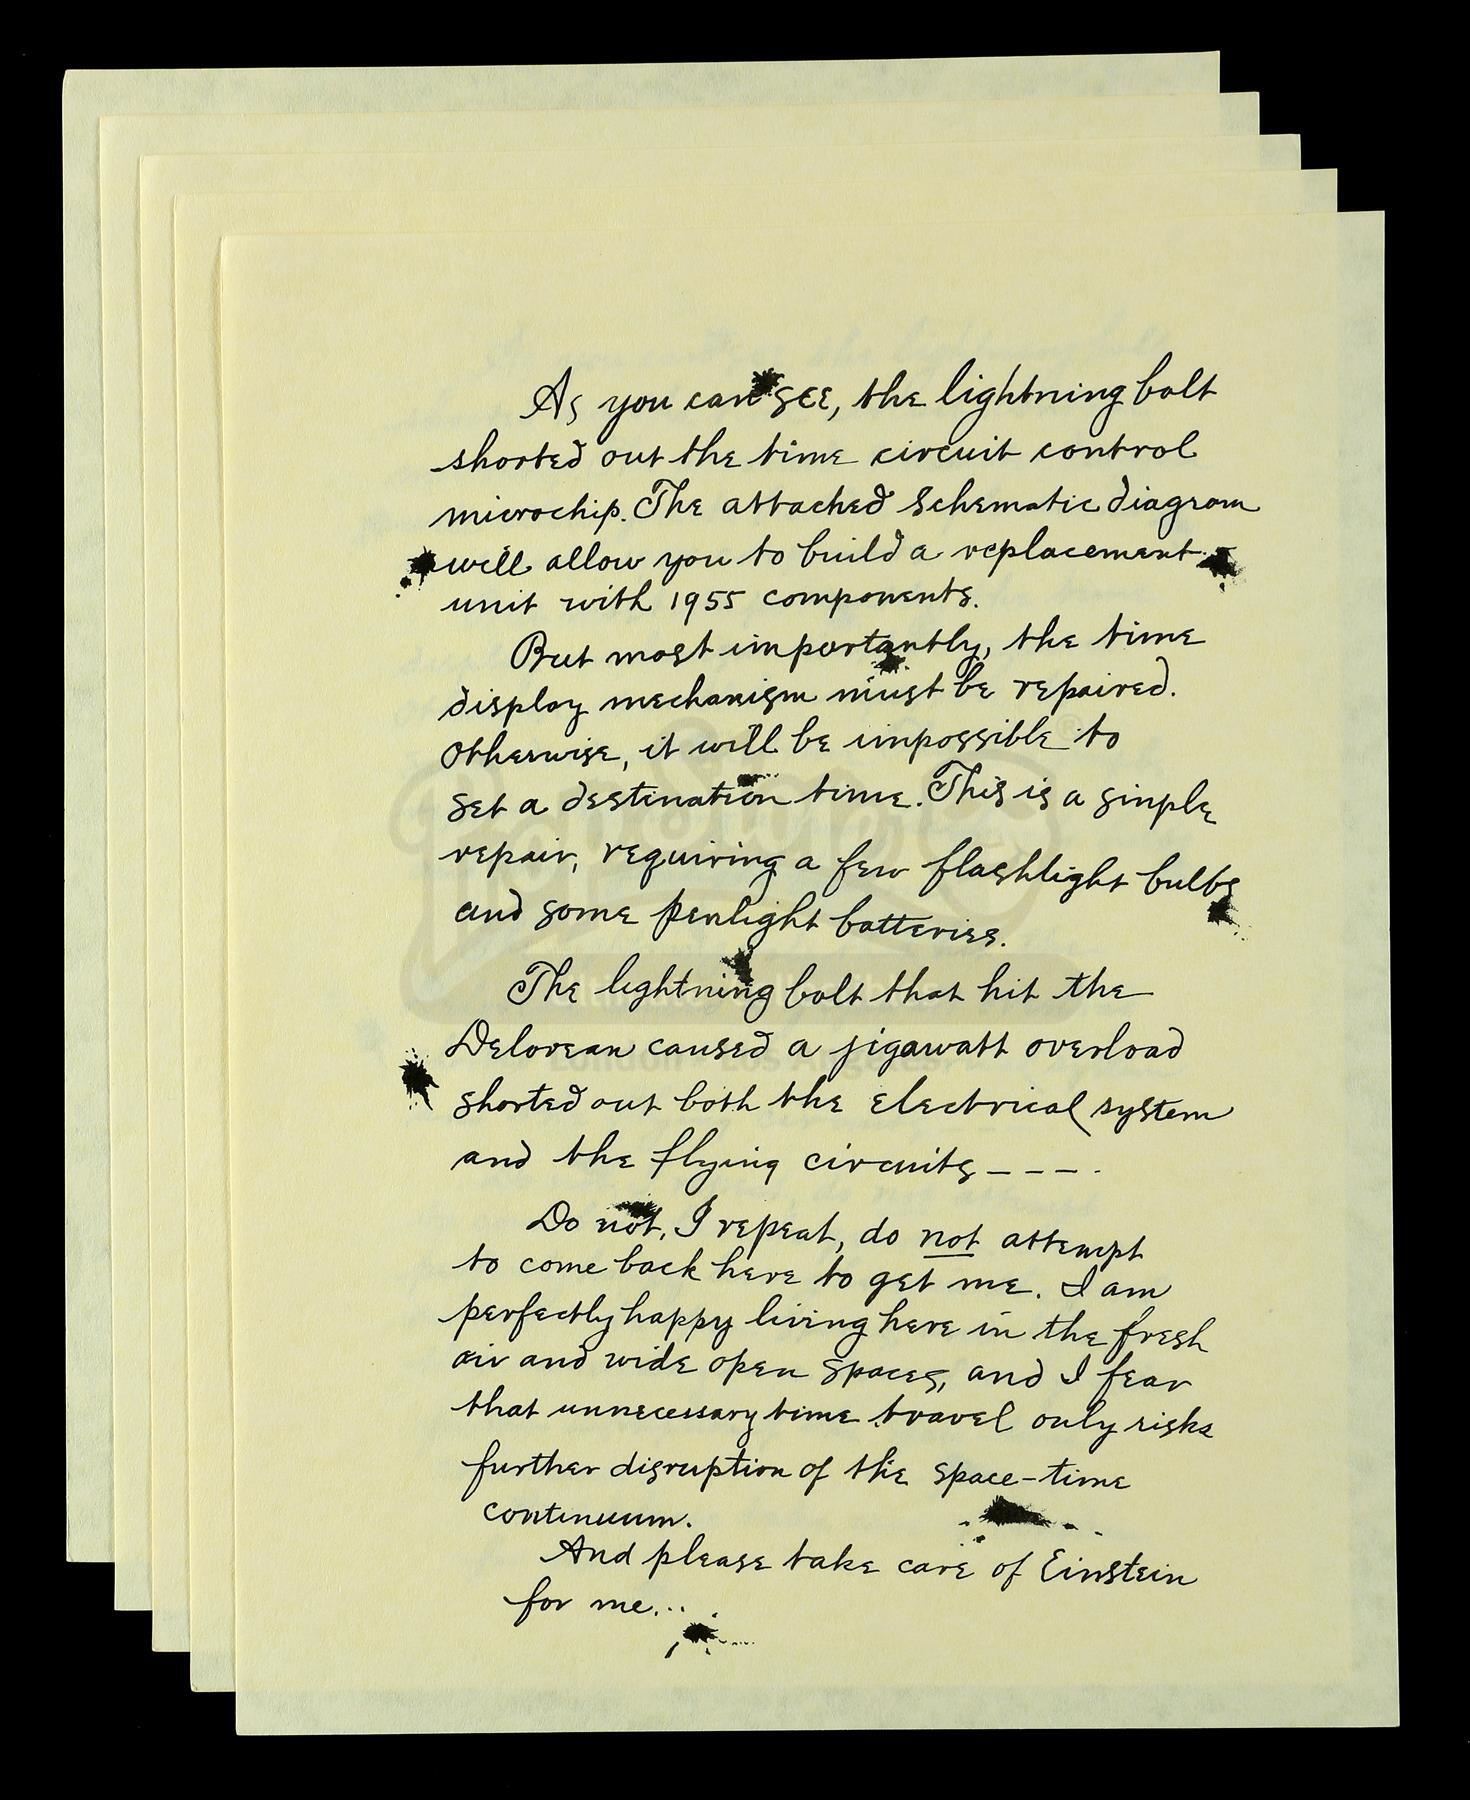 As you can see, the lightning bolt
shorted out the time circuit control
microchip. The attached schematic diagram
will allow you to build a replacement
unit with 1955 components.
But most importantly, the time
display mechanism must be repaired.
Otherwise, it will be impossible to
set a destination time. This is a simple
repair, requiring a few flashlight bulbs
and some penlight batteries.
The lightning bolt that hit the
Delorean caused a jigawatt overload
shorted out both the electrical system
and the flying circuits----
Do not, I repeat, do not attempt
to come back here to get me. I am
perfectly happy living here in the fresh
air and wide open spaces, and I fear
that unnecessary time travel only risks
further disruption of the space-time
continuum.
And please take care of Einstein
for me...